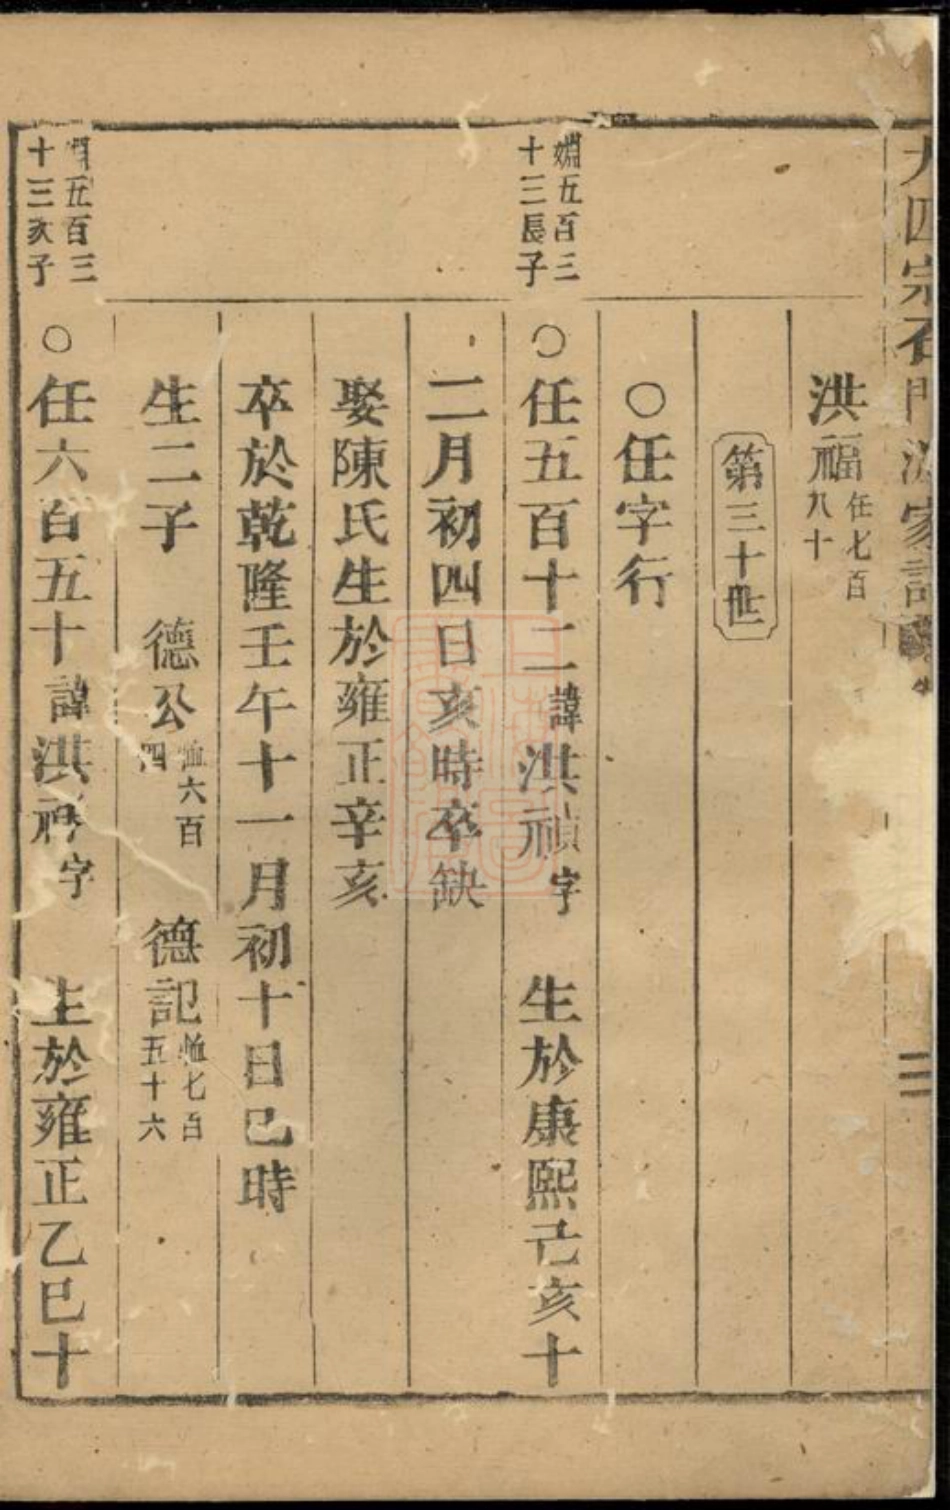 宗石門 家
二
洪福任七百八十
第三十世
○任字行
嫺五百三十三長子
○任五百十二諱洪禎字 生於康熙己亥十
二月初四日亥時卒缺
娶陳氏生於雍正辛亥
卒於乾隆壬午十一月初十日巳時
生二子 德公 六百四 德記 七百五十六
五百三十三次子
○任六百五十諱洪 字 生於雍正乙巳十